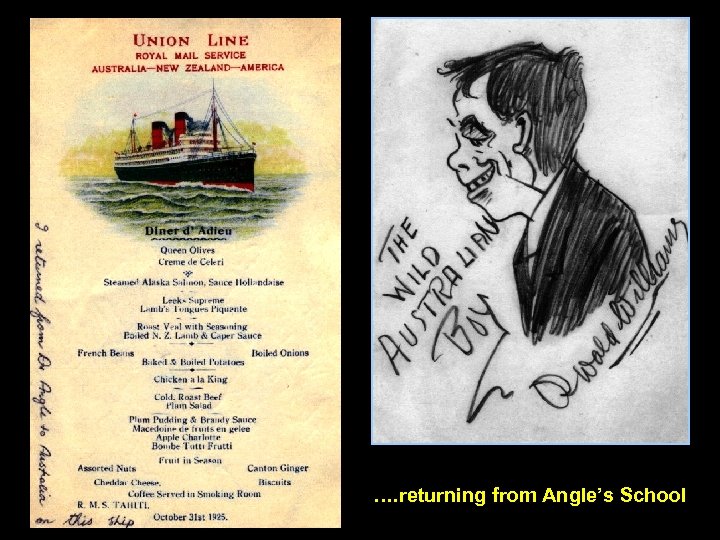 UNION LINE
ROYAL MAIL SERVICE
AUSTRALIA—NEW ZEALAND—AMERICA
Diner d' Adieu
Queen Olives
Creme de Celeri
Steamed Alaska Salmon, Sauce Hollandaise
Leeks Supreme
Lamb's Tongues Piquante
Roast Veal with Seasoning
Boiled N. Z. Lamb & Caper Sauce
French Beans Boiled Onions
Baked & Boiled Potatoes
Chicken a la King
Cold. Roast Beef
Plain Salad
Plum Pudding & Brandy Sauce
Macedoine de fruits en gelee
Apple Charlotte
Bombe Tutti Frutti
Fruit in Season
Assorted Nuts Canton Ginger
Cheddar Cheese, Biscuits
Coffee Served in Smoking Room
R. M. S. TAHITI.
October 31st 1925.
I returned from Dr Angle to Australia
on this ship
THE
WILD
AUSTRALIAN
BOY
Oswald Williams
....returning from Angle's School